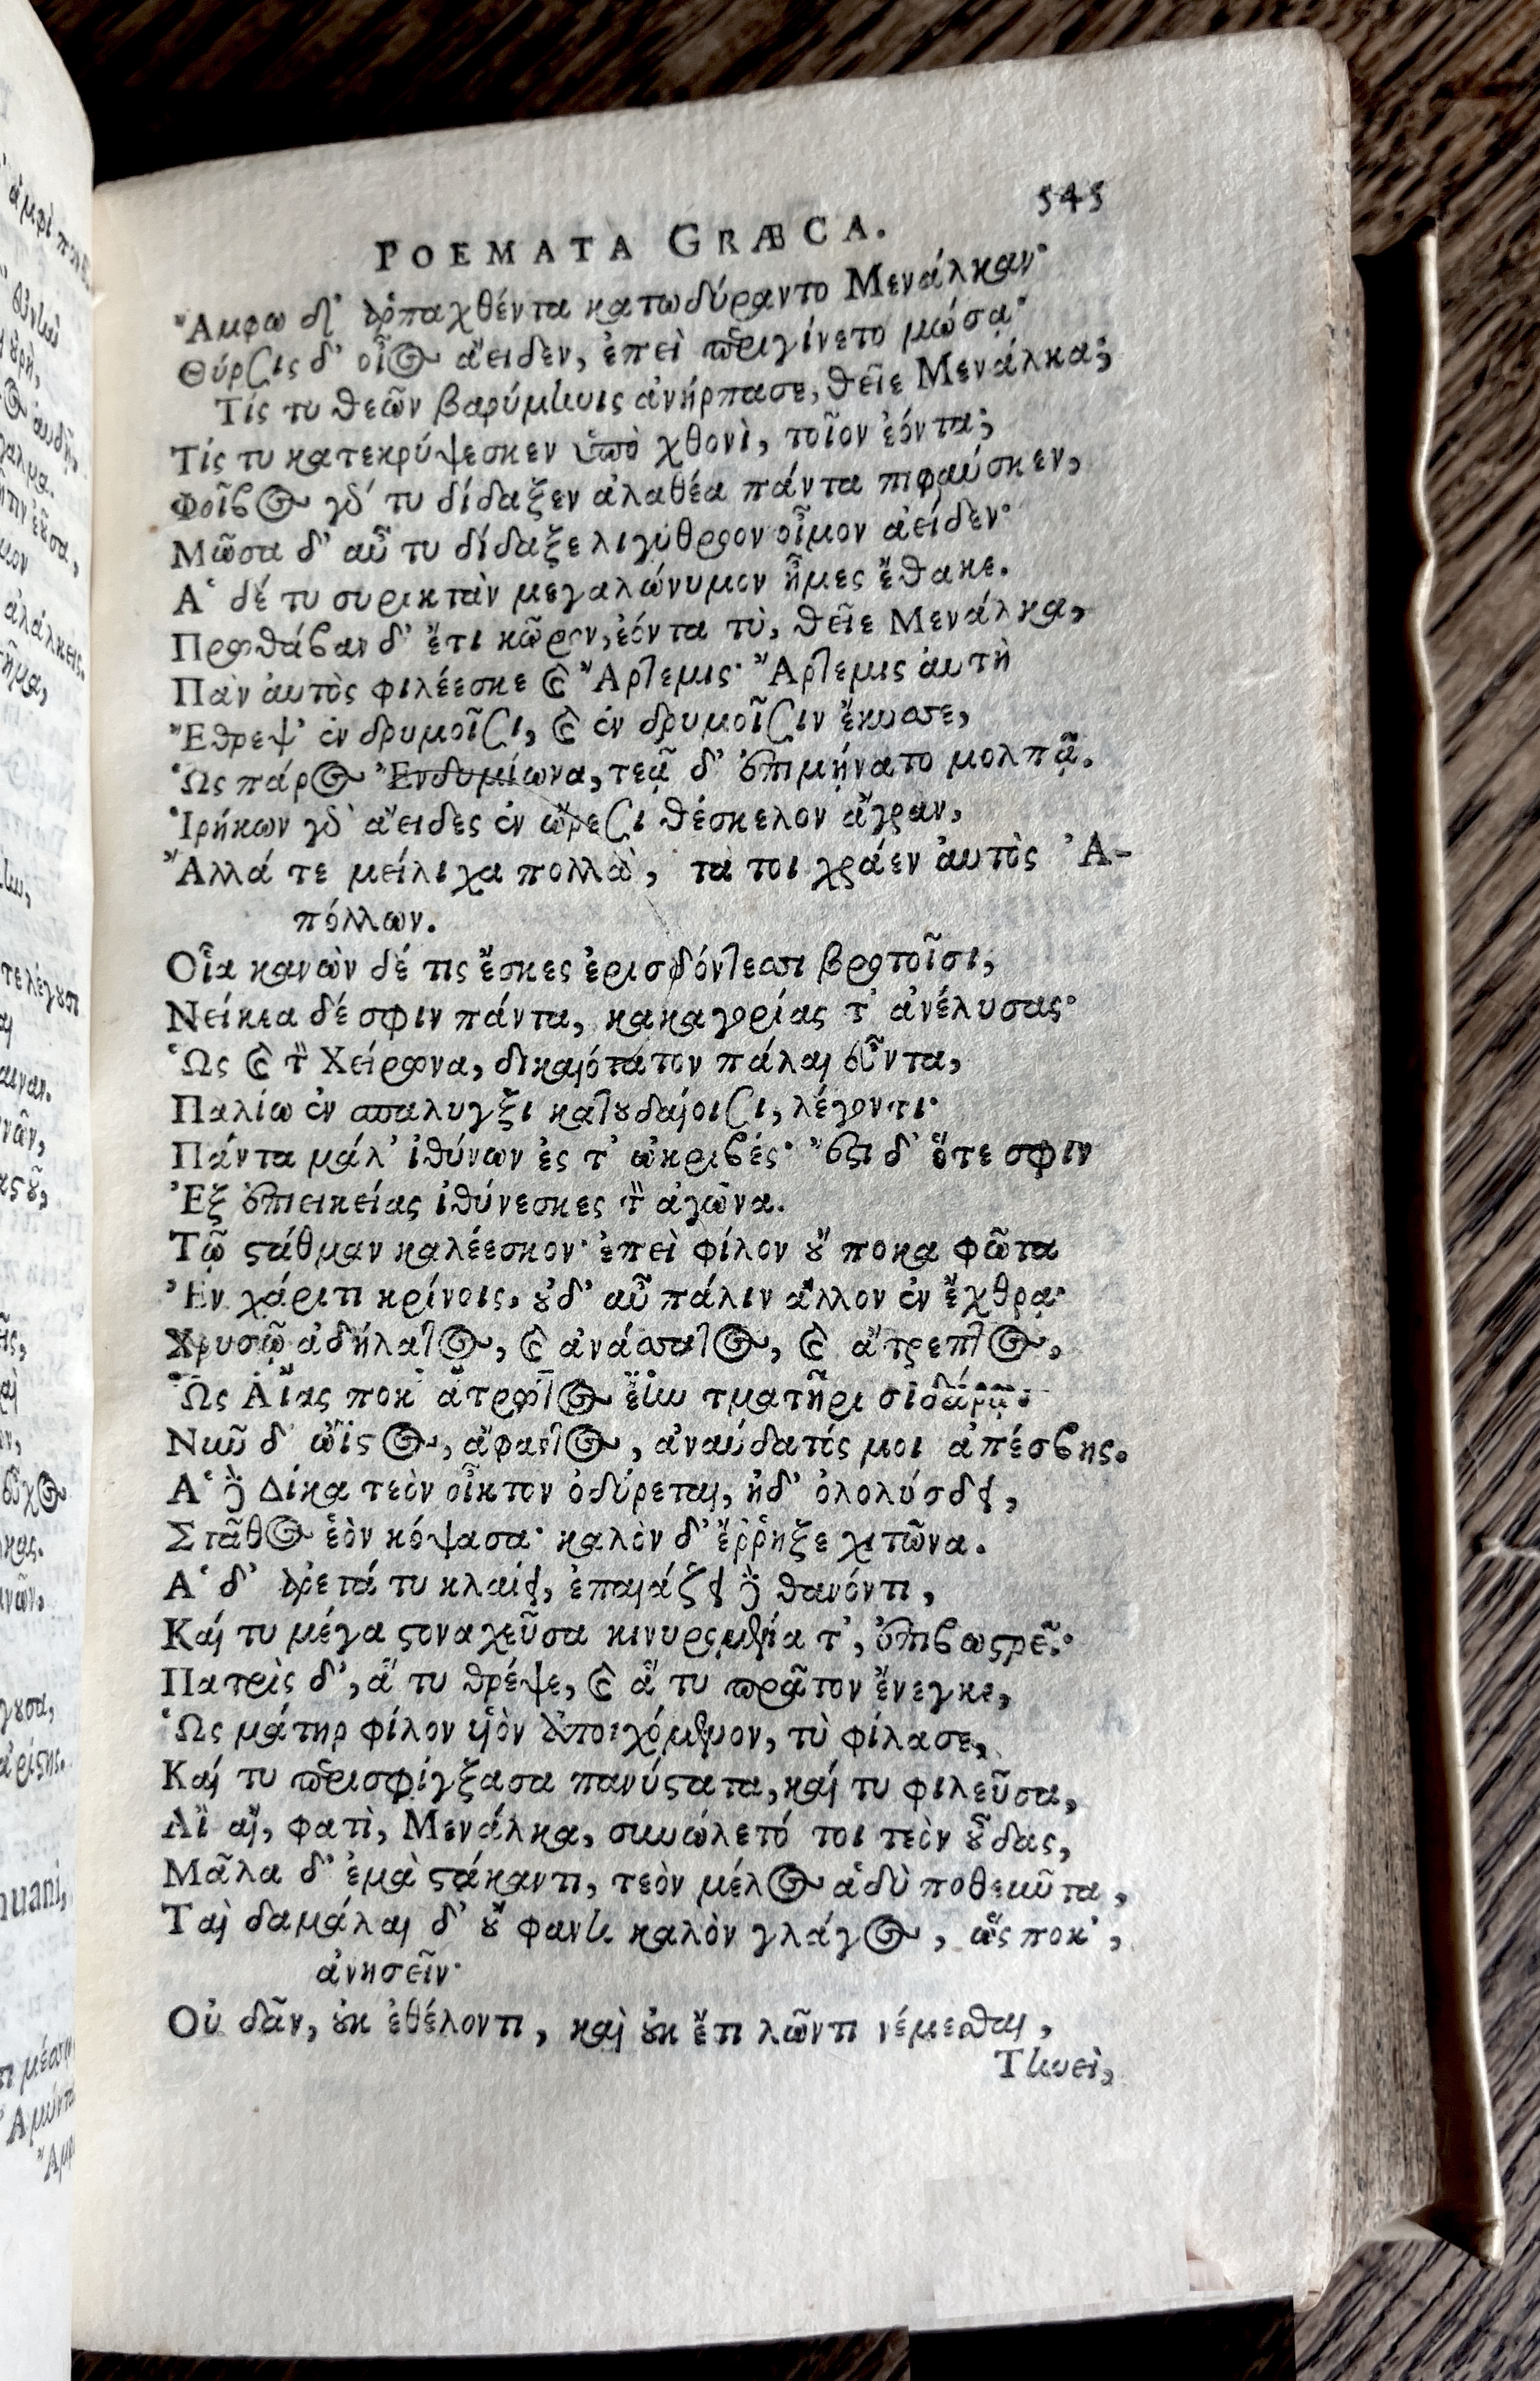 POEMATA GRÆCA. 545
Ἄμφω δὴ ἁρπαχθέντα κατωδύραντο Μενάλκαν·
Θύρσις δ' οἶος ἄειδεν, ἐπεὶ περιγίνετο μώσᾳ·
Τίς τυ θεῶν βαρύμηνις ἀνήρπασε, θεῖε Μενάλκα;
Τίς τυ κατεκρύψεσκεν ὑπὸ χθονὶ, τοῖον ἐόντα;
Φοῖβος γάρ τυ δίδαξεν ἀλαθέα πάντα πιφαύσκεν,
Μῶσα δ' αὖ τυ δίδαξε λιγύθροον οἶμον ἀείδεν·
Ἁ δέ τυ συρικτὰν μεγαλώνυμον ἦμες ἔθακε.
Προσθάβαν δ' ἔτι κῶρον, ἐόντα τὺ, θεῖε Μενάλκα,
Πὰν αὐτὸς φιλέεσκε καὶ Ἄρτεμις· Ἄρτεμις αὐτὴ
Ἔθρεψ' ἐν δρυμοῖσι, καὶ ἐν δρυμοῖσιν ἔκυσσε,
Ὡς πάρος Ἐνδυμίωνα, τεᾷ δ' ἐπιμήνατο μολπᾷ.
Ἱρήκων γὰρ ἄειδες ἐν ὤρεσι θέσκελον ἄγραν,
Ἄλλά τε μείλιχα πολλὰ, τά τοι χράεν αὐτὸς Ἀ-
πόλλων.
Οἷα κανὼν δέ τις ἔσκες ἐρισδόντεσσι βροτοῖσι,
Νείκεα δέ σφιν πάντα, κακαγορίας τ' ἀνέλυσας·
Ὡς καὶ τὸν Χείρωνα, δικαιότατον πάλαι ὄντα,
Παλίω ἐν σπαλυγξι κατουδαίοισι, λέγοντι·
Πάντα μάλ' ἰθύνων ἐς τ' ὠκριβές· ἔστι δ' ὅτε σφιν
Ἐξ ἐπιεικείας ἰθύνεσκες τὸν ἀγῶνα.
Τῷ στάθμαν καλέεσκον· ἐπεὶ φίλον οὔ ποκα φῶτα
Ἐν χάριτι κρίνοις, οὐδ' αὖ πάλιν ἄλλον ἐν ἔχθρᾳ·
Χρυσῷ ἀδήλατος, καὶ ἀνάσπατος, καὶ ἄτρεπτος,
Ὡς Αἴας ποκ' ἄτρωτος ἔην τματῆρι σιδάρῳ·
Νῦν δ' ὤϊστος, ἄφαντος, ἀναύδατός μοι ἀπέσβης.
Ἁ γὰρ Δίκα τεὸν οἶκτον ὀδύρεται, ἠδ' ὀλολύσδει,
Στᾶθος ἑὸν κόψασα· καλὸν δ' ἔῤῥηξε χιτῶνα.
Ἁ δ' ἀρετά τυ κλαίει, ἐπαιάζει γὰρ θανόντι,
Καί τυ μέγα στοναχεῦσα κινυρομένα τ', ἐπιβωστρεῖ·
Πατρὶς δ', ἅ τυ θρέψε, καὶ ἅ τυ πρᾶτον ἔνεγκε,
Ὡς μάτηρ φίλον υἱὸν ἀποιχόμενον, τὺ φίλασε,
Καί τυ περισφίγξασα πανύστατα, καί τυ φιλεῦσα,
Αἲ αἴ, φατὶ, Μενάλκα, συνώλετό τοι τεὸν οὖδας,
Μᾶλα δ' ἐμὰ στάκαντι, τεὸν μέλος ἁδὺ ποθεῦντα,
Ταὶ δαμάλαι δ' οὔ φαντι καλὸν γλάγος, ὥς ποκ',
ἀνησεῖν·
Οὐ δᾶν, οὐκ ἐθέλοντι, καὶ οὐκ ἔτι λῶντι νέμεσθαι,
Τηνεὶ,